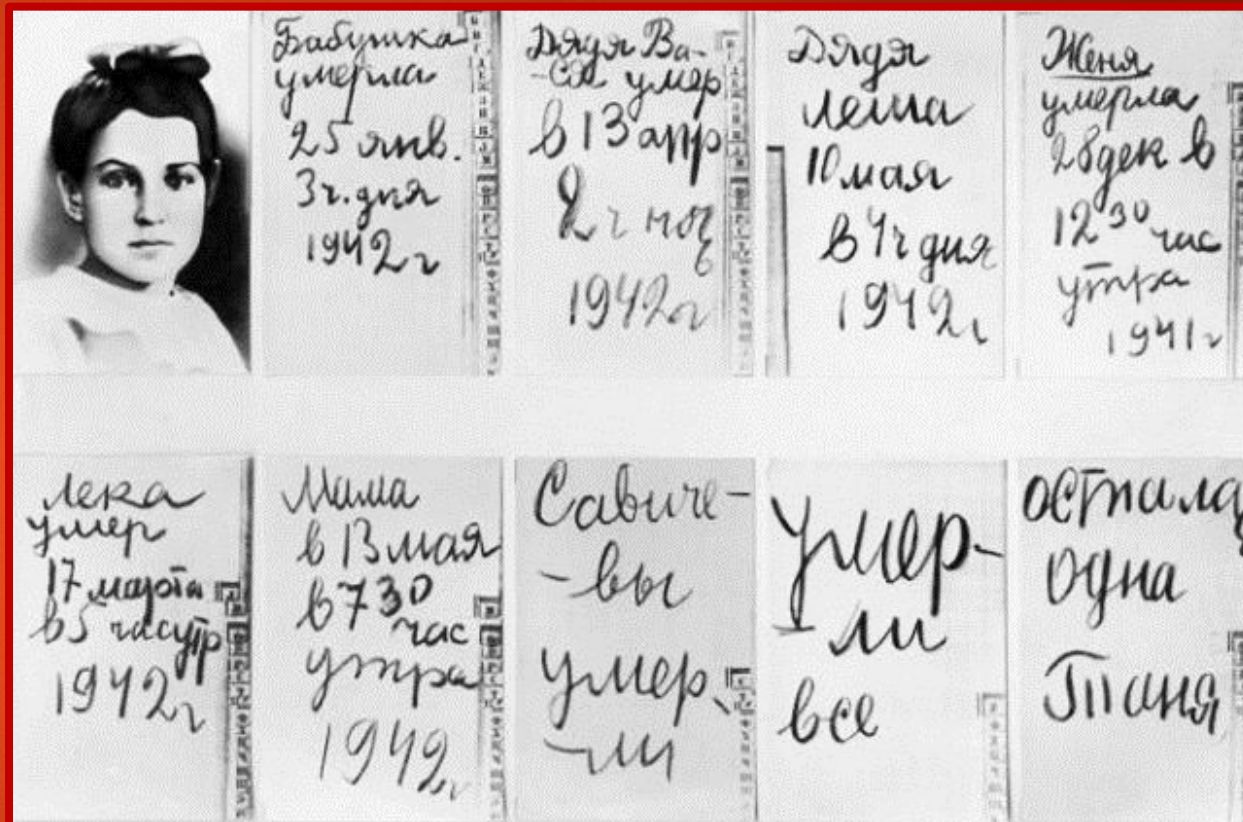 Бабушка
умерла
25 янв.
3 ч. дня
1942 г
Дядя Ва-
-ся умер
в 13 апр
2 ч ночь
1942 г
Дядя
Леша
10 мая
в 4 ч дня
1942 г
Женя
умерла
28 дек в
12 30 час
утра
1941 г
Лека
умер
17 марта
в 5 час утр
1942 г
Мама
в 13 мая
в 7 30
час
утра
1942 г
Савиче-
-вы
умер-
-ли
Умер-
-ли
все
остала
одна
Таня